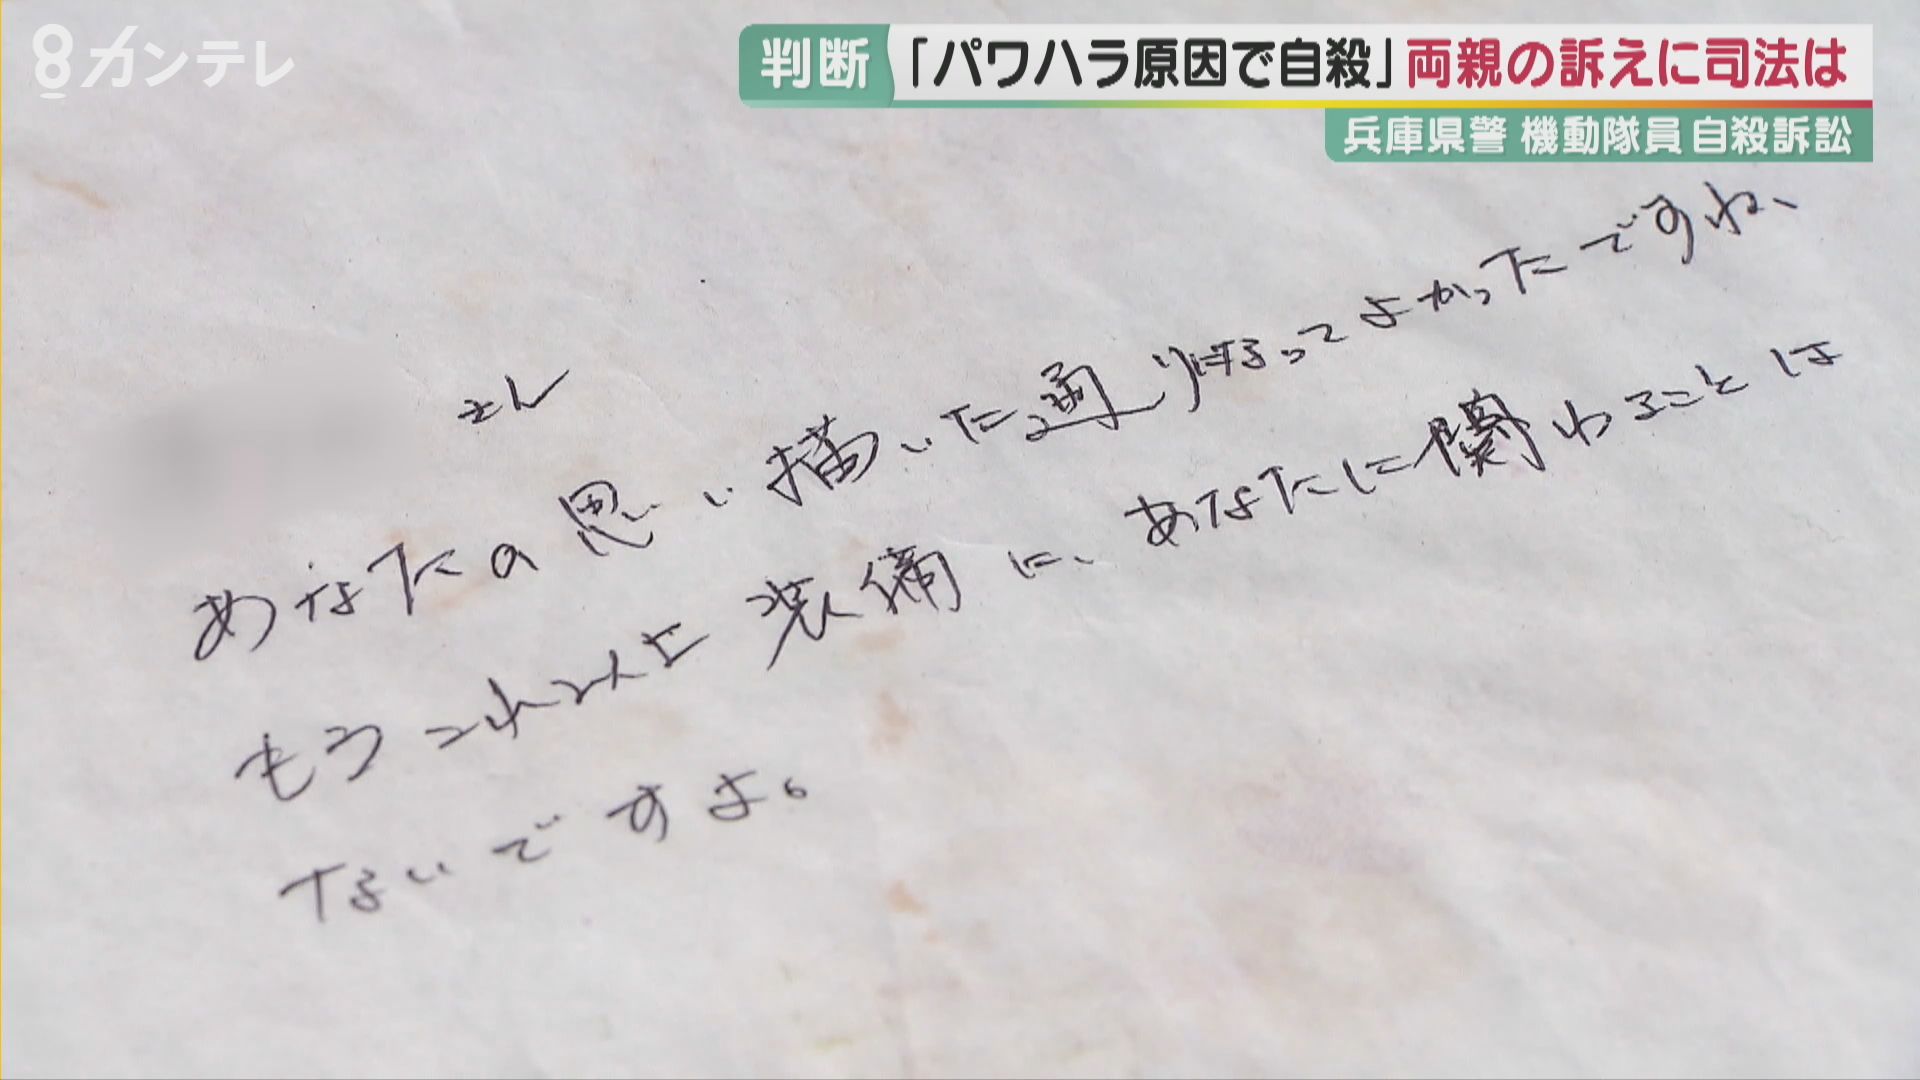 8カンテレ
判断 「パワハラ原因で自殺」両親の訴えに司法は
兵庫県警 機動隊員 自殺訴訟
さん
あなたの思い描いた通りになってよかったですね、
もうこれ以上装備に、あなたに関わることは
ないですよ。